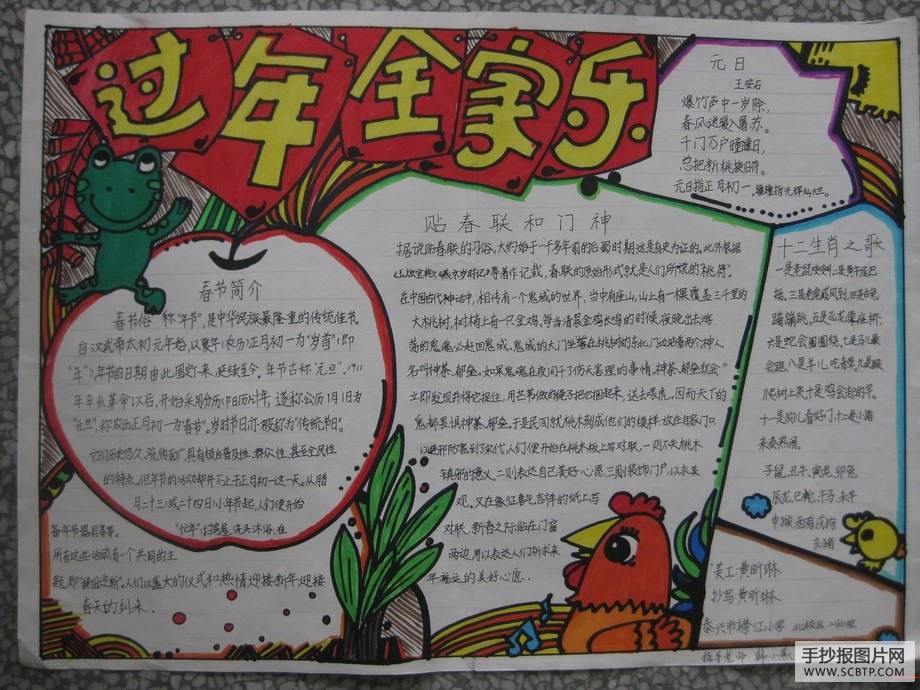 过年全家乐
元日
王安石
爆竹声中一岁除,
春风送暖入屠苏。
千门万户曈曈日,
总把新桃换旧符。
元日指正月初一,
春节简介
春节俗称"年节",是中华民族最隆重的传统佳节。
自汉武帝太初元年始,以夏年(农历)正月初一为"岁首"(即
"年"),年节的日期由此固定下来,延续至今。年节古称"元旦"。1911
年辛亥革命以后,开始采用公历(阳历)计年,遂称公历1月1日为
"元旦",称农历正月初一为"春节"。岁时节日亦被称为"传统节日"。
它们历史悠久、流传面广,具有极大普及性、群众性、甚至全民性
的特点。但年节的活动却并不止于正月初一这一天。从腊
月二十三(或二十四日)小年节起,人们便开始
"忙年":扫房屋、洗头沐浴、
备年节器具等等。
所有这些活动有一个共同的主
题,即"辞旧迎新"。人们以盛大的仪式和热情迎接新年,迎接
春天的到来。
贴春联和门神
据说贴春联的习俗,大约始于一千多年前的后蜀时期这是有史为证的。此外根据
等著作记载,春联的原始形式就是人们所说的"桃符。
在中国古代神话中,相传有一个鬼域的世界,当中有座山,山上有一棵覆盖三千里的
大桃树,树梢上有一只金鸡。每当清晨金鸡长鸣的时候,夜晚出去游
荡的鬼魂必赶回鬼域。鬼域的大门坐落在桃树的东北,门边站着两个神人
名叫神荼、郁垒。如果鬼魂在夜间干了伤天害理的事情,神荼、郁垒就会
立即发现并将它捉住,用芒苇做的绳子把它捆起来,送去喂虎。因而天下的
鬼都畏惧神荼、郁垒。于是民间就用桃木刻成他们的模样放在自家门口
以避邪防害。到了宋代,人们便开始在桃木板上写对联,一则不失桃木
镇邪的意义,二则表达自己美好心愿,三则装饰门户,以求美
观。又在象征喜气吉祥的纸上写
对联,新春之际贴在门窗
两边,用以表达人们祈求来
年福运的美好心愿。
十二生肖之歌
蹦蹦跳。五是
六是蛇会圈圈绕,七是马儿
会跑。八是羊儿吃青草,九是猴
爬树上来,十是鸡会起的早
十一是狗儿看好门,十二是小猪
来凑热闹。
子鼠、丑牛、寅虎、卯兔
辰龙、巳蛇、午马、未羊
申猴、酉鸡、戌狗
亥猪
美工:黄昕琳
抄写:黄昕琳
泰兴市襟江小学
指导老师
手抄报图片网
WWW.SCBTP.COM